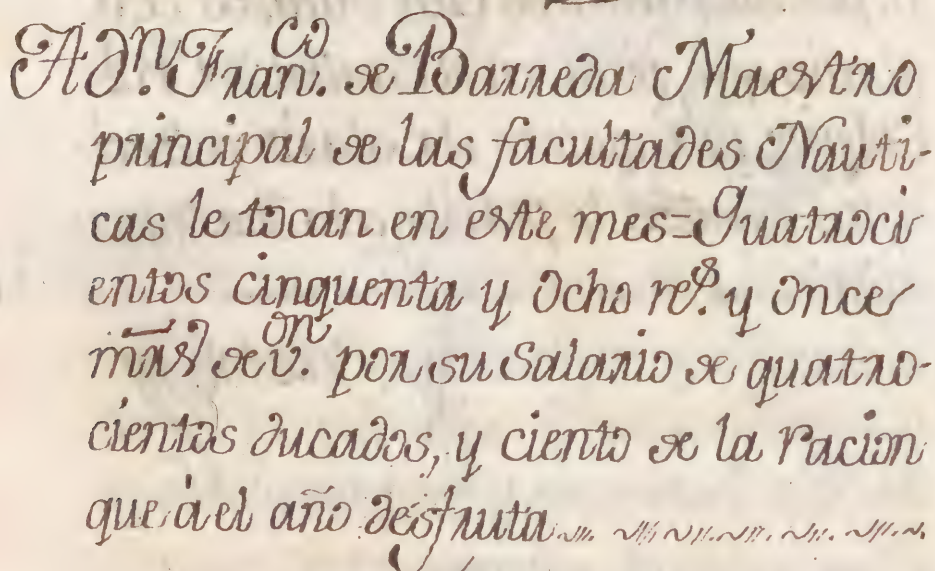 A Dⁿ. Franᶜᵒ. de Barreda Maestro
principal de las facultades Nauti-
cas le tocan en este mes=Quatroci
entos cinquenta y Ocho rˢ. y Once
mr̄s de vᵒⁿ. por su Salario de quatro-
cientos ducados, y ciento de la racion
que à el año desfruta